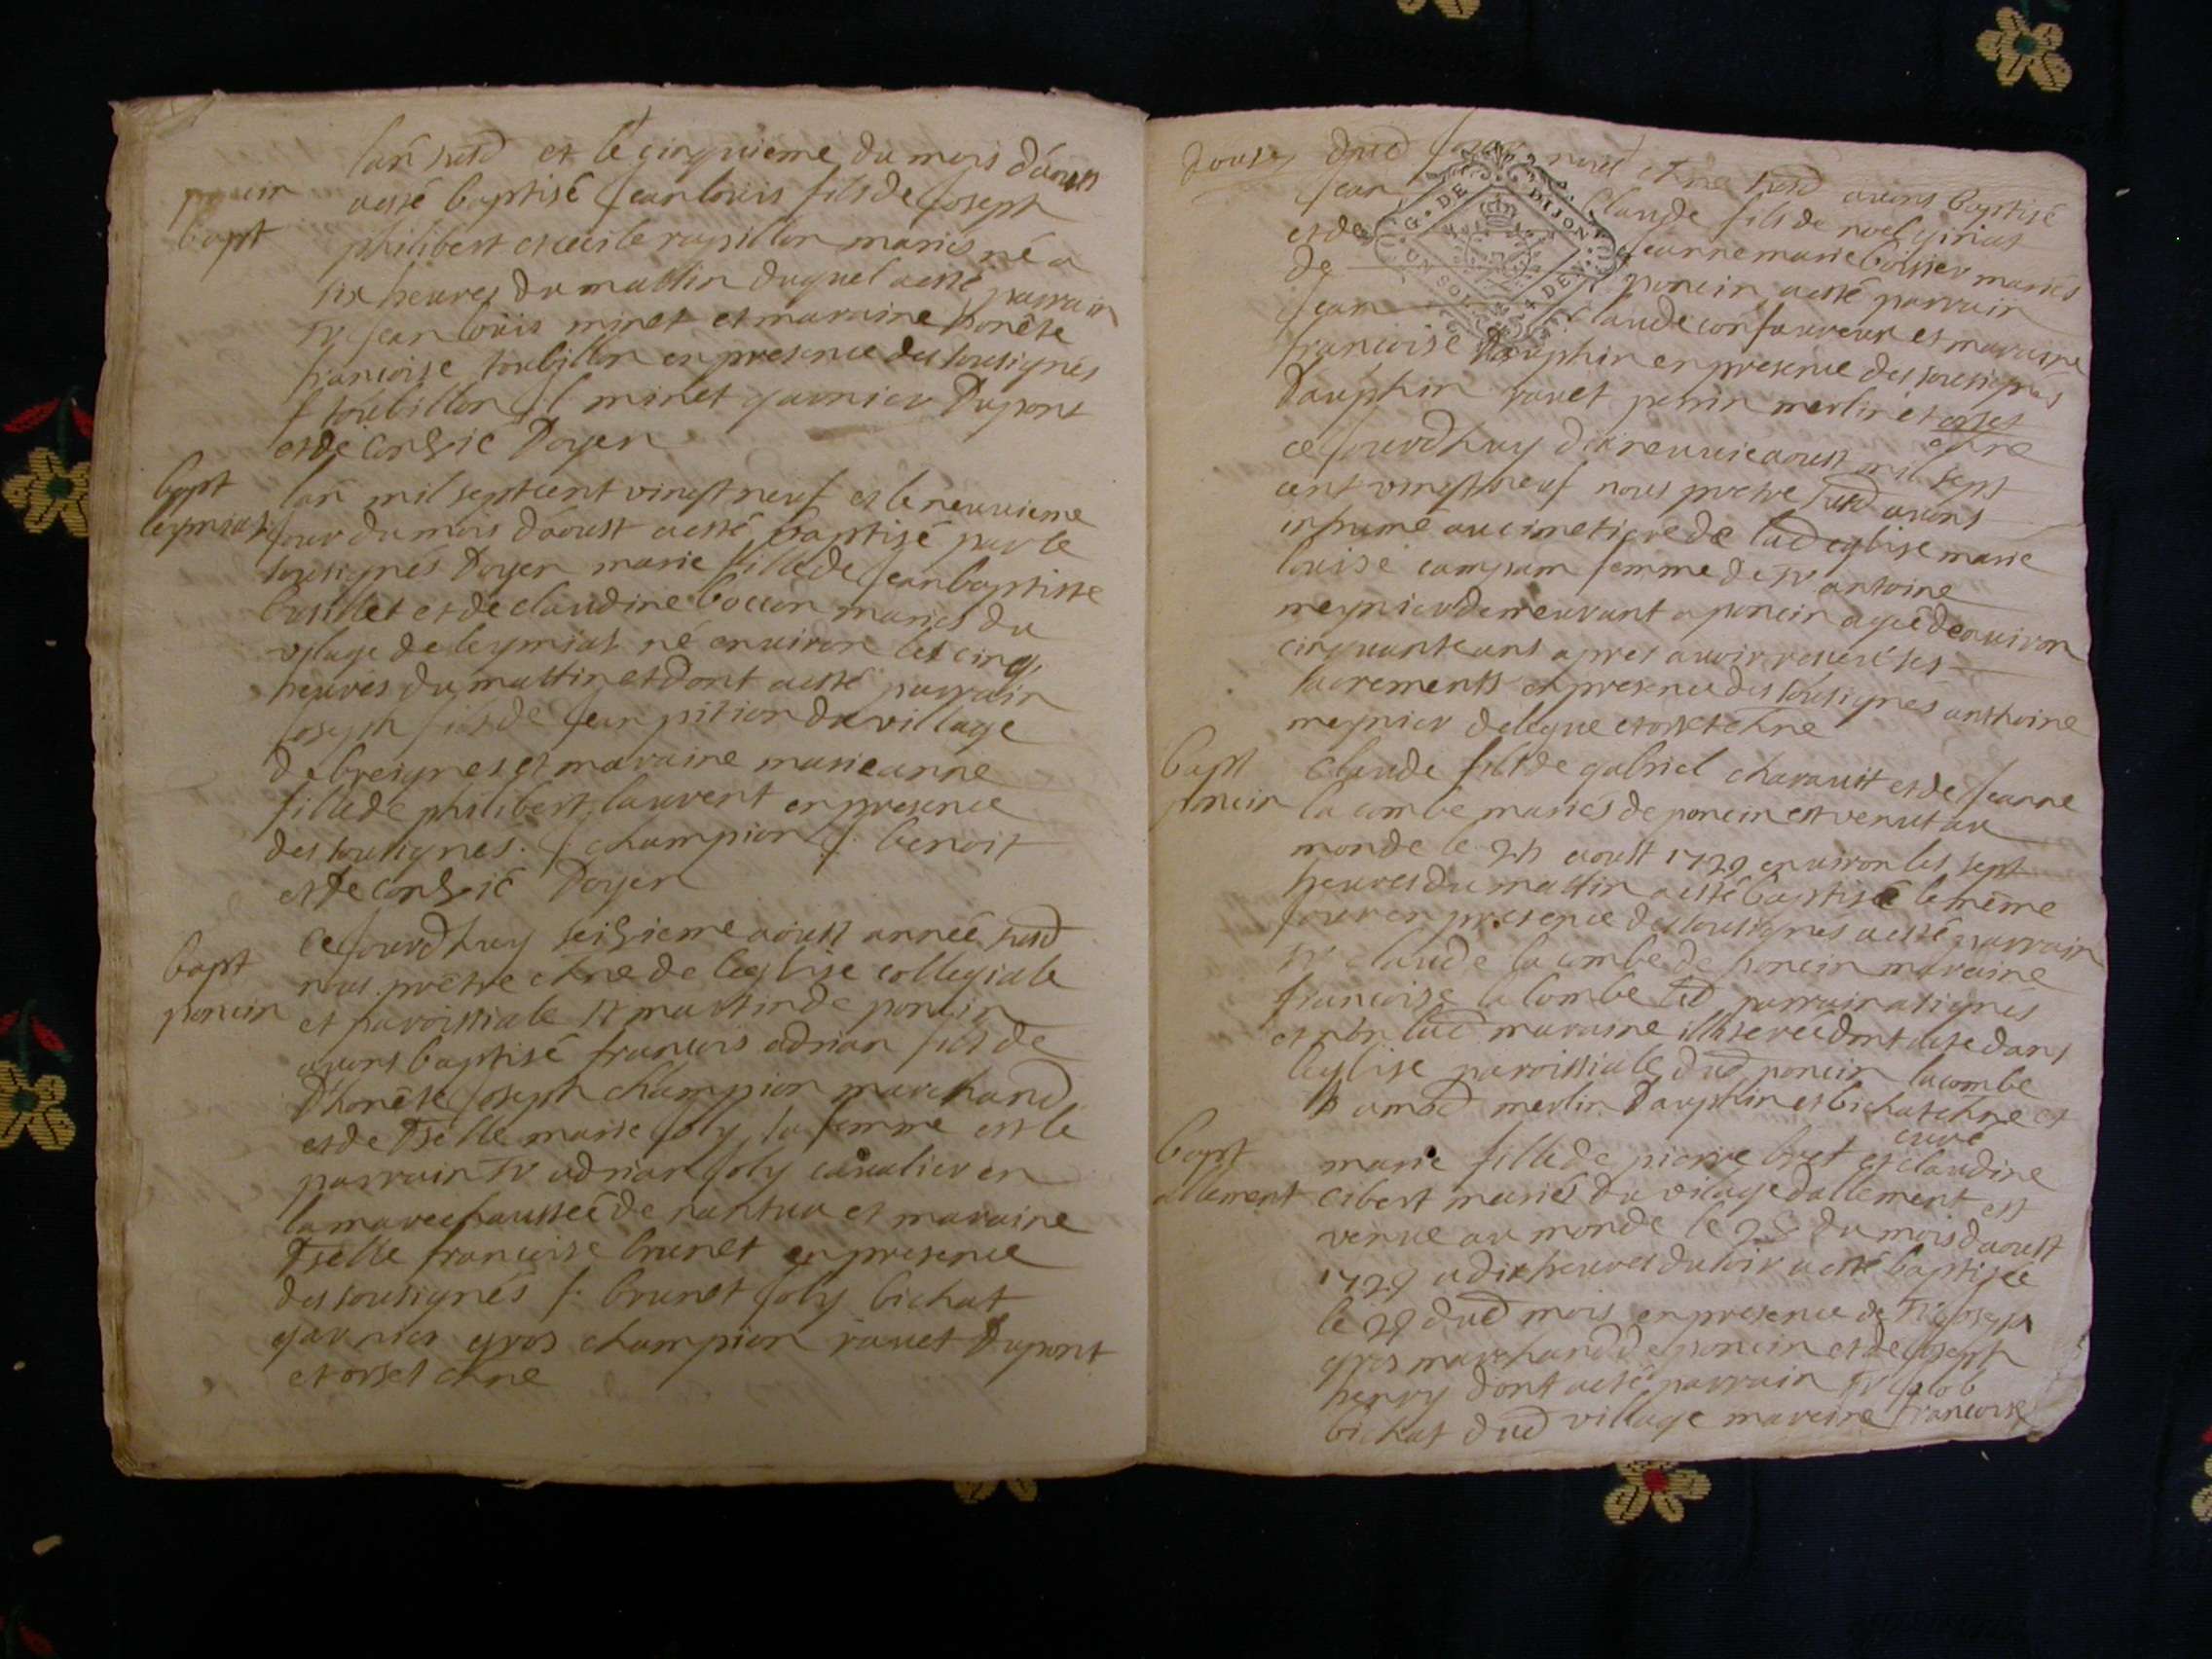 lan susd et le cinquieme du mois d'aoust
poncin
bapt
a esté baptisé Jean louis fils de Joseph
philibert et cecile rapillon mariés né a
six heures du mattin duquel a esté parrain
sr Jean loüis minet et maraine honête
francoise toubillon en presence des sousignés
f toubillon J l minet garnier Dupont
et de Conzié Doyen
bapt
leymiat
lan mil sept cent vingt neuf et le neuvieme
jour du mois d'aoust a esté baptisé par le
sousignés Doyen marie fille de Jean baptiste
et de claudine bocon mariés du
vilage de leymiat né environ les cinq
heures du mattin et dont a esté parrain
Joseph fils de Jean pition du village
de breignes et maraine marie anne
fille de philibert laurent en presence
des sousignés. J champion J. benoit
et De Conzié Doyen
bapt
poncin
ce jourdhuy seizieme aoust année susd
nous prêtre chne de leglise collegiale
et paroissiale st martin de poncin
avons baptisé francois adrian fils de
Dhonête Joseph champion marchand
et de Dselle marie Joly sa femme est le
parrain sr adrian Joly cavalier en
la marechaussée de nantua et maraine
Dselle francoise brunet en presence
des sousignés f. brunet Joly bichat
garnier gros champion ravet Dupont
et orset chne
dud nous chne susd avons baptisé
Jean Claude fils de noel giriat
et de Jeanne marie boissier mariés
de poncin a esté parrain
Jean claude confavreux et maraine
francoise Dauphin en presence des sousignés
Dauphin ravet perrin merlin et orset
chne
ce jourdhuy dixneuvie aoust mil sept
cent vingt neuf nous pretre susd avons
inhumé au cimetiere de lad eglise marie
louise campam femme de sr antoine
meynier demeurant a poncin agée denviron
cinquante ans apres avoir receu ses
sacrements en presence des sousignés anthoine
meynier delegue et orset chne
bapt
poncin
Claude fils de gabriel charauit et de Jeanne
lacombe mariés de poncin est venut au
monde le 24 aoust 1729 environ les sept
heures du mattin a esté baptisé le même
jour en presence des sousignés a esté parrain
sr claude lacombe de poncin maraine
francoise lacombe led parrain a signés
et non lad maraine illiterée dont acte dans
leglise paroissiale dud poncin lacombe
merlin Dauphin et bichat chne et
curé
bapt
allement
marie fille de pierre bret et claudine
cibert mariés du vilage dallement est
venue au monde le 28 du mois daoust
1729 a dix heures du soir a esté baptisée
le 29 dud mois en presence de sr Joseph
gros marchand de poncin et de Joseph
henry dont a esté parrain sr Jacob
bichat dud village maraine francoise
G. DE DIJON